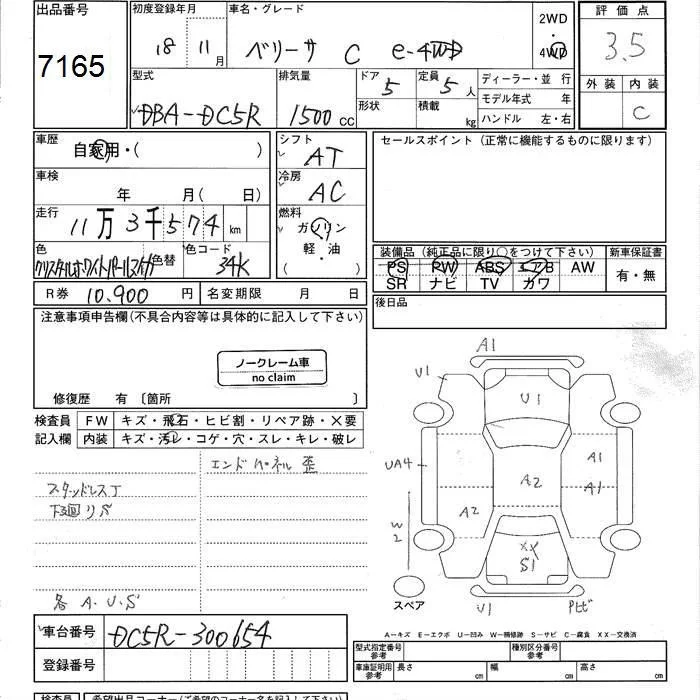 出品番号 初度登録年月 車名・グレード 2WD 評価点
7165 18 11月 ベリーサ C e-4WD 4WD 3.5
型式 排気量 ドア 定員 ディーラー・並 行 外装 内装
DBA-DC5R 1500cc 5 5人 モデル年式 年 C
形状 積載 kg ハンドル 左・右
車歴 自家用・( ) シフト AT セールスポイント(正常に機能するものに限ります)
車検 年 月(日) 冷房 AC
走行 11万3千574km 燃料 ガソリン
軽・油
( )
色 クリスタルホワイトパール 色替 色コード 34K
装備品(純正品に限り○をつけて下さい) 新車保証書
PS PW ABS エアB AW 有・無
SR ナビ TV カワ
R券 10.900円 名変期限 月 日 後日品
注意事項申告欄(不具合内容等は具体的に記入して下さい)
ノークレーム車
no claim
修復歴 有〔箇所 〕
検査員 FW キズ・飛石・ヒビ割・リペア跡・X要
記入欄 内装 キズ・汚れ・コゲ・穴・スレ・キレ・破レ
エンドパネル 歪
スタッドレスT
下廻リサ
各 A.U.S
A1
U1
U1
UA4
A1
A2
A1
A2
W2
XX
S1
スペア
U1
Pビ
A-キズ E-エクボ U-凹み W-補修跡 S-サビ C-腐食 XX-交換済
車台番号 DC5R-300654
登録番号
型式指定番号 参考 種別区分番号 参考
車庫証明用 参考 長さ cm 幅 cm 高さ cm
検査員 希望出品コーナー(ご希望のコーナー名を記入して下さい)